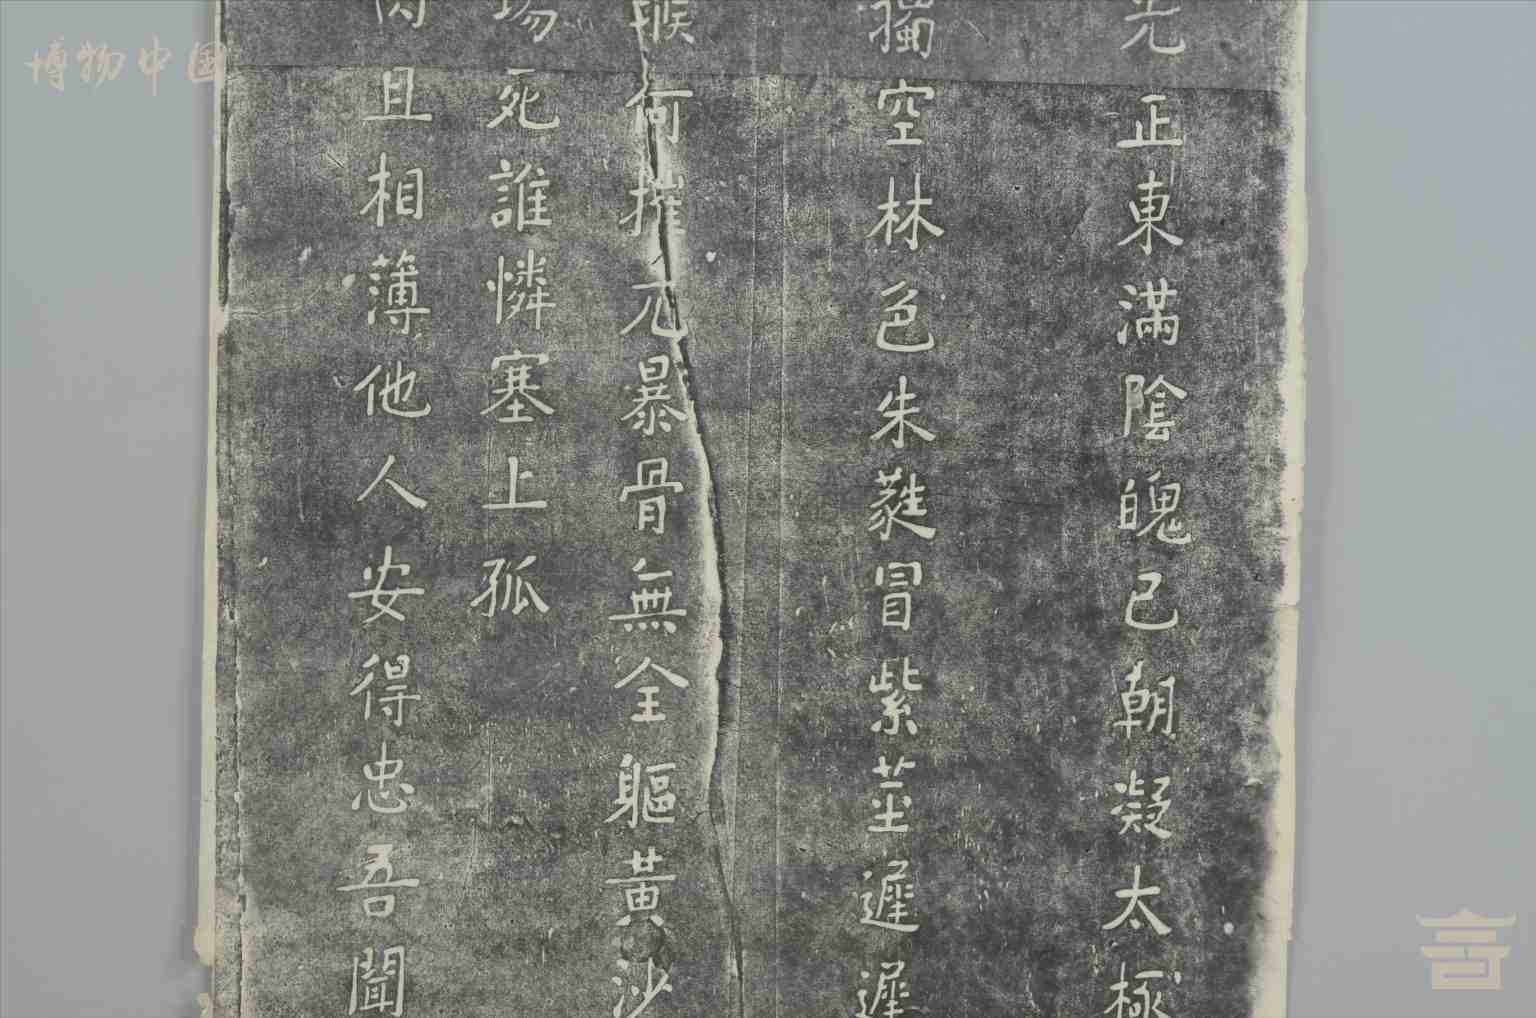 博物中国
光正東滿陰魄已朝凝太極
獨空林色朱蕤冒紫莖遲遲
堠何摧兀暴骨無全軀黃沙
場死誰憐塞上孤
肉且相薄他人安得忠吾聞